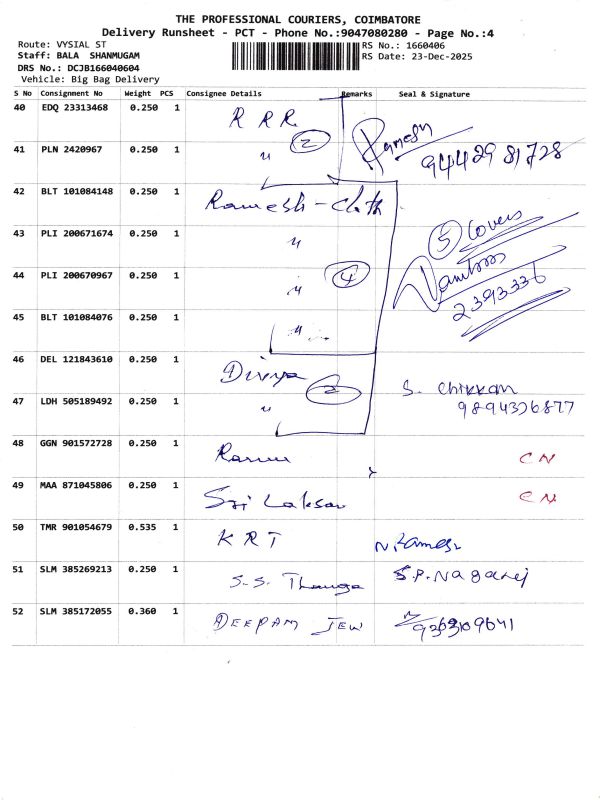 THE PROFESSIONAL COURIERS, COIMBATORE
Delivery Runsheet - PCT - Phone No.:9047080280 - Page No.:4
Route: VYSIAL ST
RS No.: 1660406
Staff: BALA SHANMUGAM
RS Date: 23-Dec-2025
DRS No.: DCJB166040604
Vehicle: Big Bag Delivery
S No Consignment No Weight PCS Consignee Details Remarks Seal & Signature
40 EDQ 23313468 0.250 1 R R R Ramesh
41 PLN 2420967 0.250 1 " 2 9442981728
42 BLT 101084148 0.250 1 Ramesh - Cloth
43 PLI 200671674 0.250 1 " 5 Covers
44 PLI 200670967 0.250 1 " 4 2393336
45 BLT 101084076 0.250 1 "
46 DEL 121843610 0.250 1 Divya S. Chikkan
47 LDH 505189492 0.250 1 " 2 9894326877
48 GGN 901572728 0.250 1 CN
49 MAA 871045806 0.250 1 Sri CN
50 TMR 901054679 0.535 1 K R T N. Ramesh
51 SLM 385269213 0.250 1 S.S. Thanga S.P. Nagaraj
52 SLM 385172055 0.360 1 DEEPAM JEW 9363109641